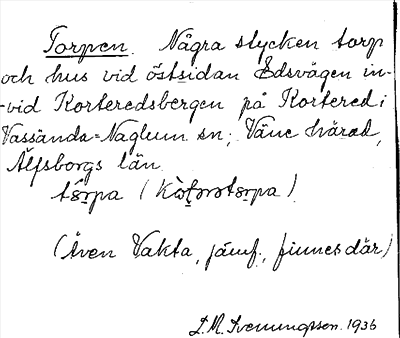 Torpen. Några stycken torp
och hus vid östsidan Edsvägen in-
-vid Korteredsbergen på Kortered i
Vassända-Naglum sn; Väne härad,
Älfsborgs län.
(Även Vakta, jämf., finnes där)
D.M. Svenungsson. 1936